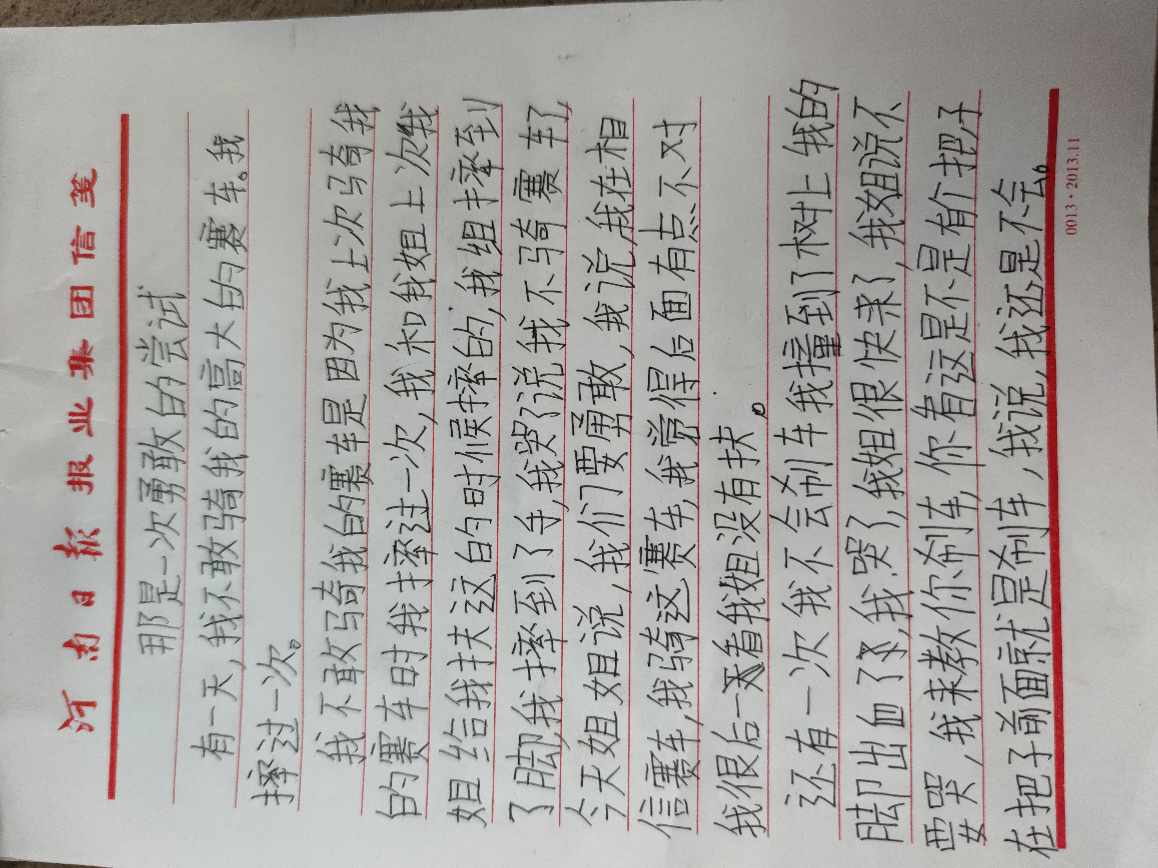 河南日报报业集团信笺
那是一次勇敢的尝试
有一天,我不敢骑我的高大的赛车。我
摔过一次。
我不敢骑我的赛车是因为我上次骑我
的赛车时我摔过一次,我和我姐上次我
姐给我扶这的时候摔的,我组摔到
了脚,我摔到了手,我哭了说我不骑赛车了,
今天姐姐说,我们要勇敢,我说,我在相
信赛车,我骑这赛车,我觉得后面有点不对
我很后一看我姐没有扶。
还有一次我不会刹车我撞到了树上我的
脚出血了,我哭了,我姐很快来了,我姐说不
要哭,我来教你刹车,你看这是不是有个把子
在把子前面就是刹车,我说,我还是不会。
0013·2013.11